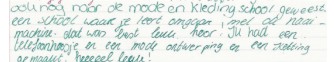 ook nog naar de mode en kleding school geweest.
een school waar je leert omgaan met de naai-
machine. dat was best leuk hoor. Ju had een
telefoonhoesje en een mode ontwerping en een
gemaakt. heeeeel leuk!